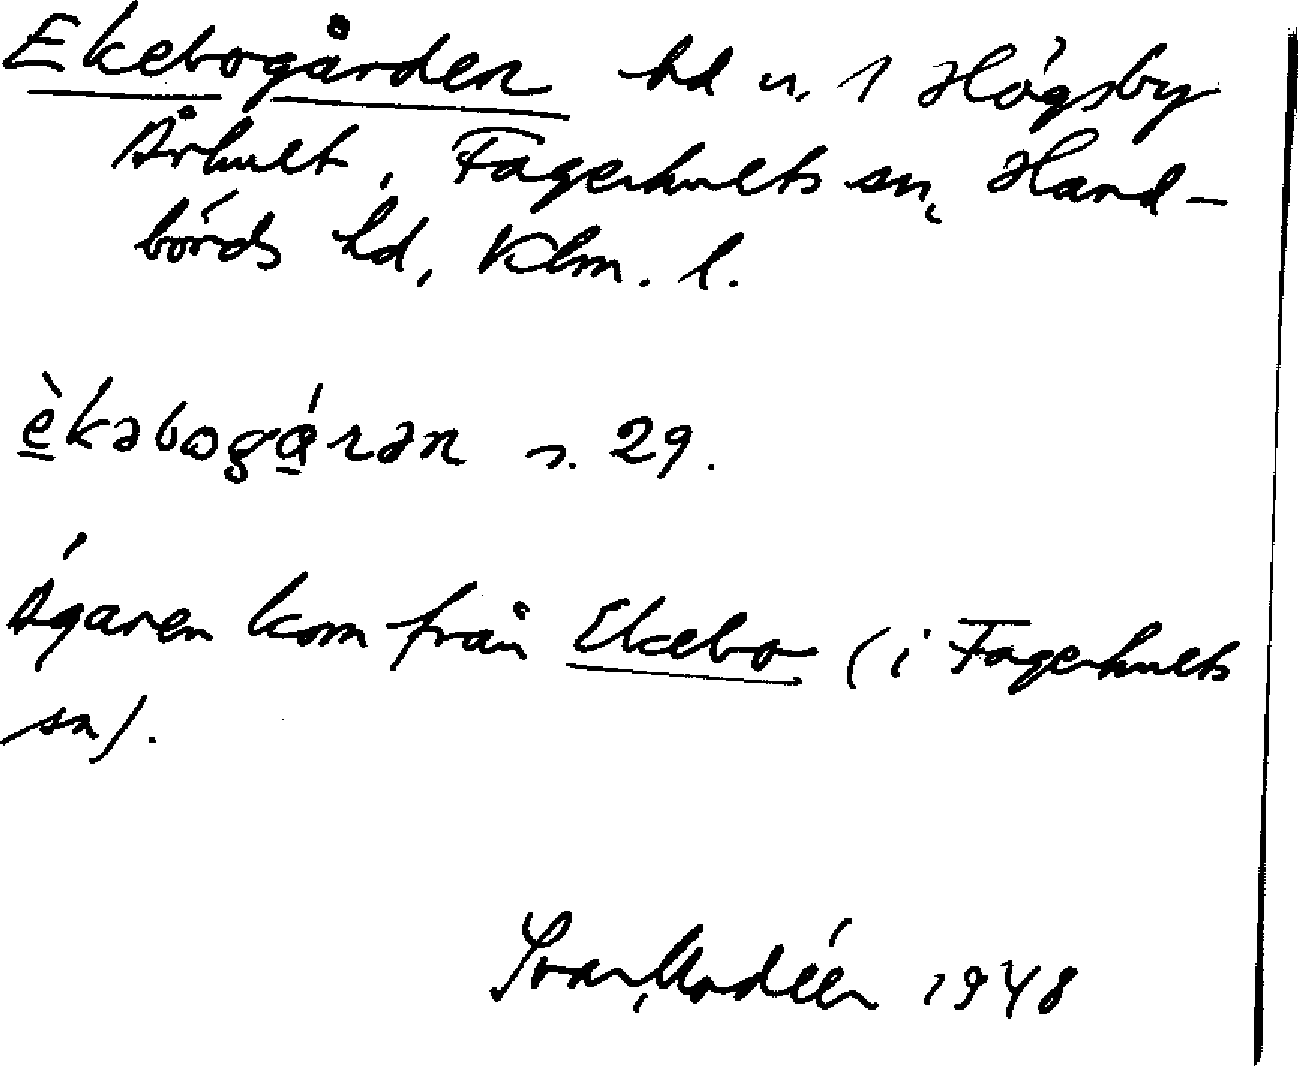 Ekebogården hd u. 1 Högsby
Århult, Fagerhults sn, Hand-
börds hd, Klm. l.
èkəbogá̱rən s. 29.
Ägaren kom från Ekebo (i Fagerhults
sn).
Ivar Modéer 1948